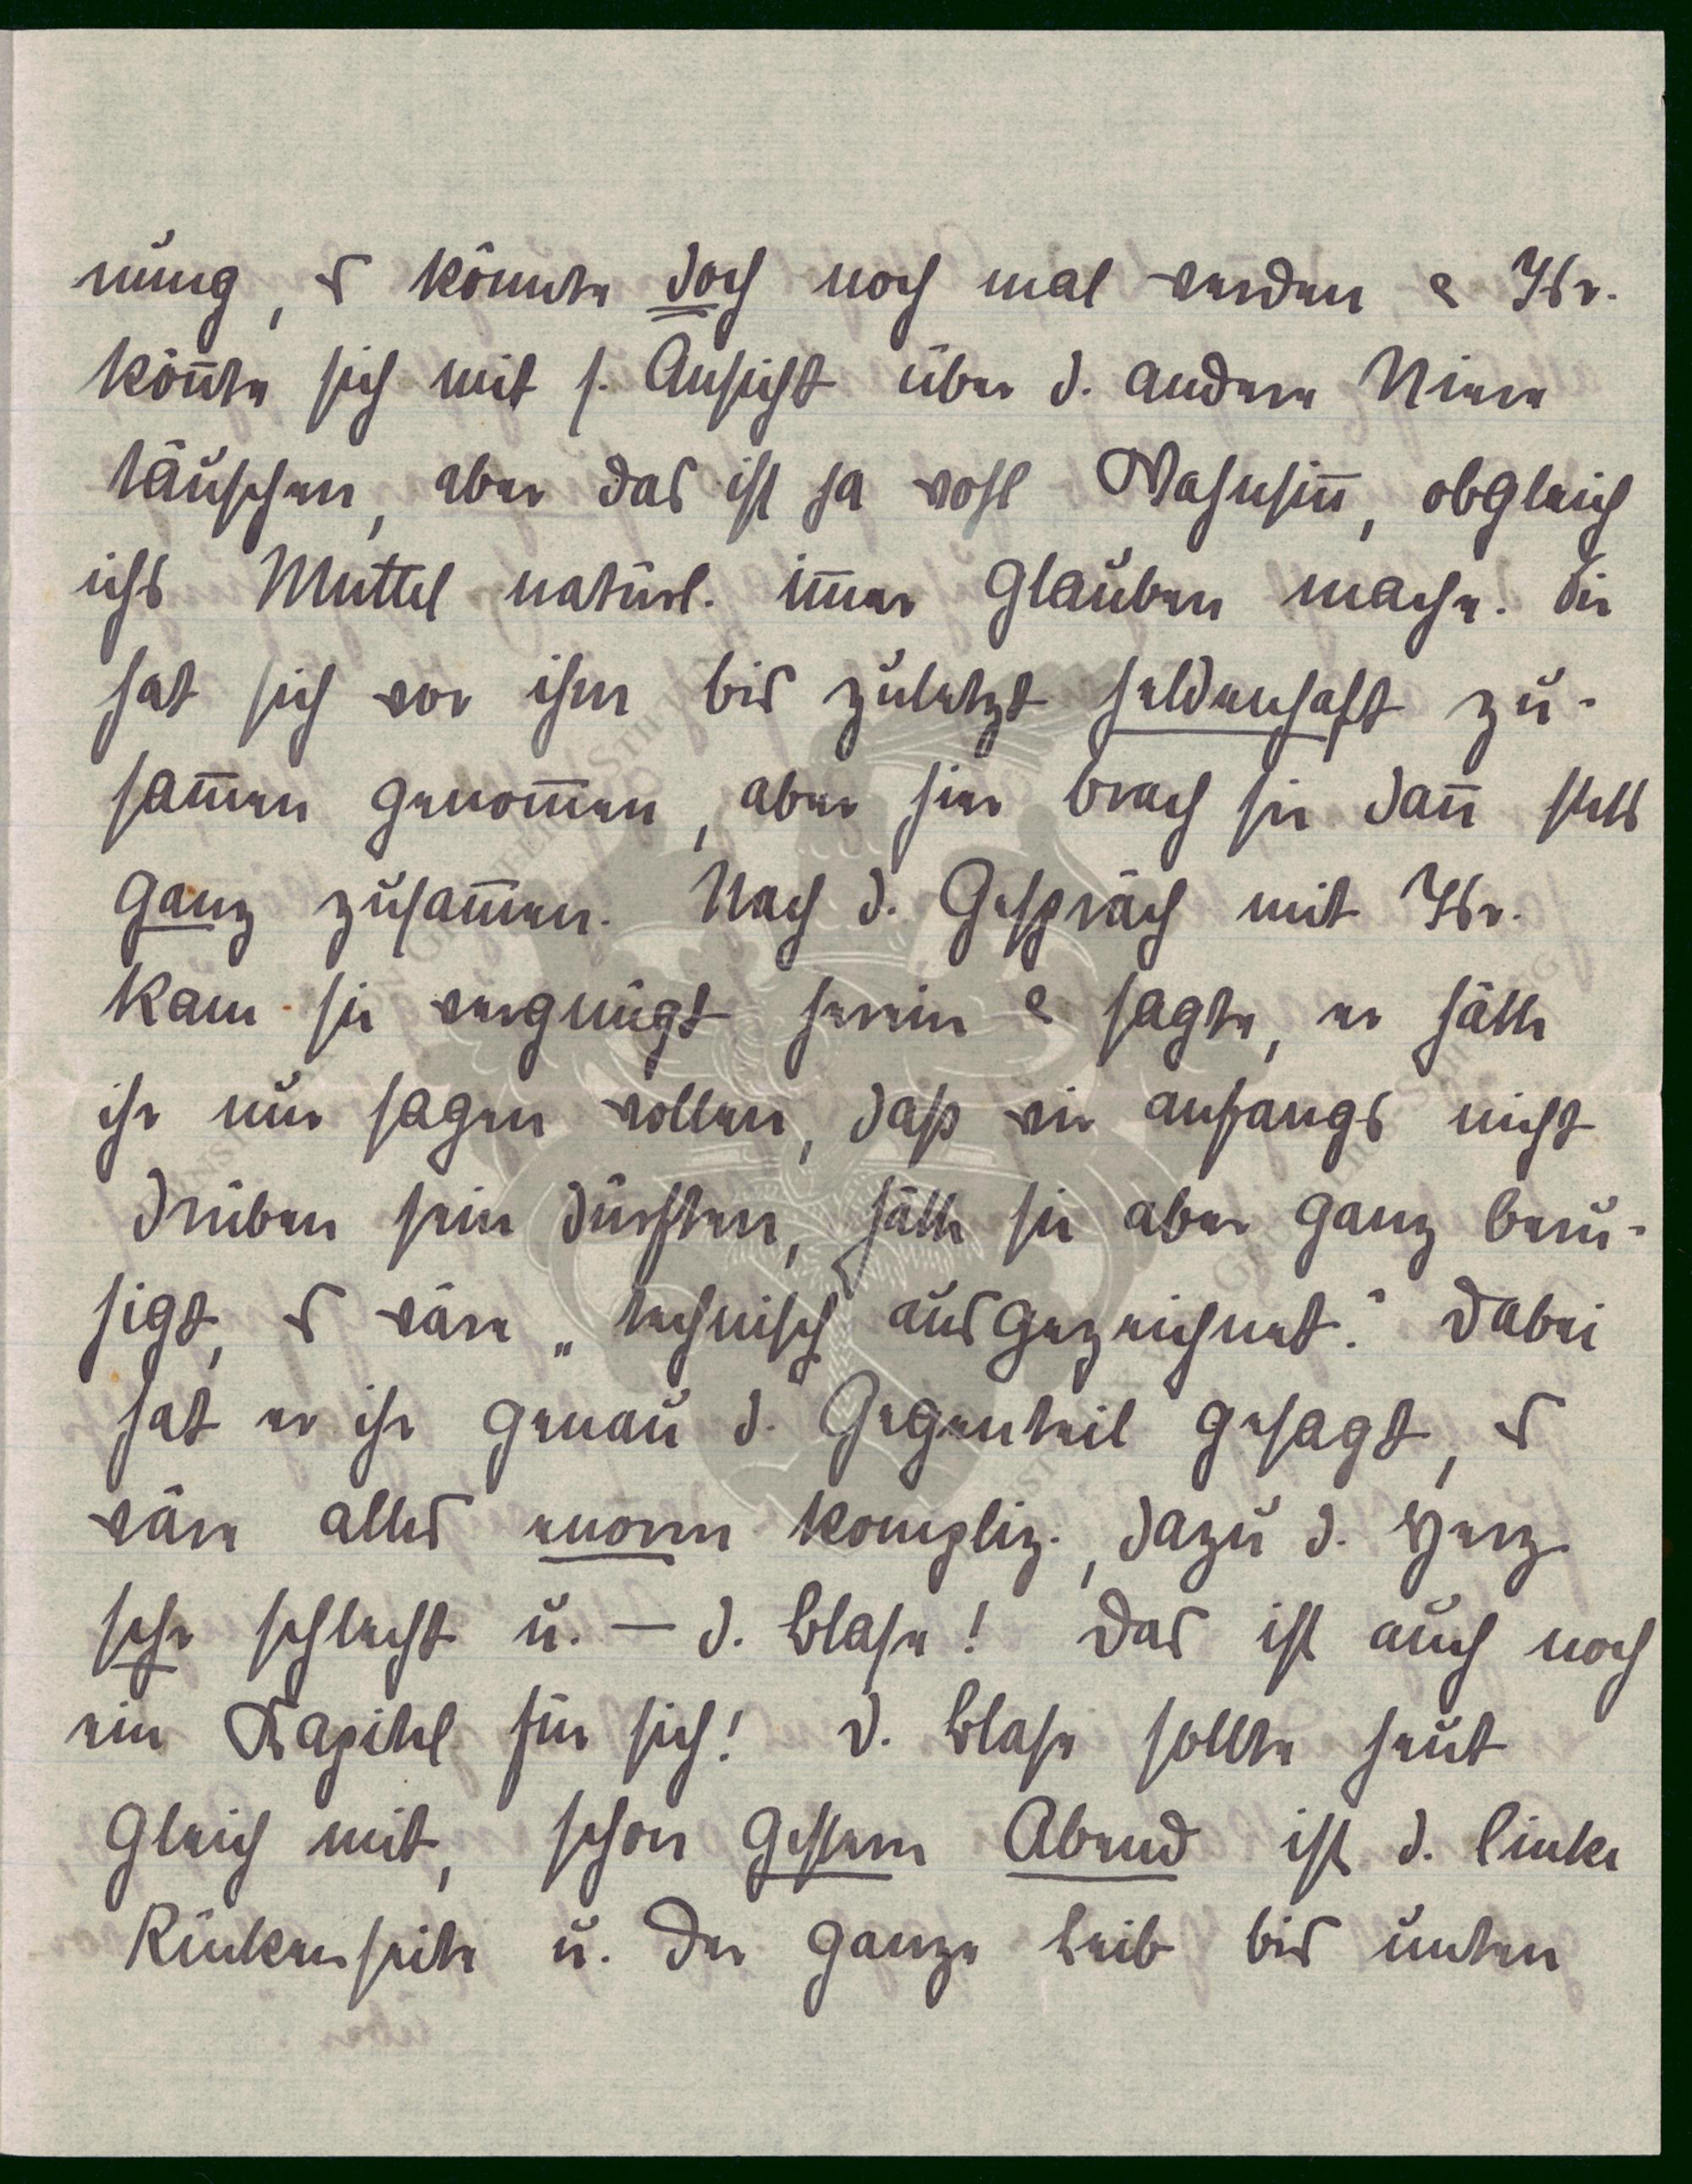 nung, es könnte doch noch mal werden u. Isr.
kön̄te sich mit s. Ansicht über d. andere Niere
täuschen, aber das ist ja wohl Wahnsin̄, obgleich
ichs Muttel natürl. im̄er glauben mache. Sie
hat sich vor ihm bis zuletzt heldenhaft zu-
sam̄en genom̄en, aber hier brach sie dan̄ stets
ganz zusam̄en. Nach d. Gespräch mit Isr.
kam sie vergnügt herein u. sagte, er hätte
ihr nur sagen wollen, daß wir anfangs nicht
drüben sein dürften, hätte sie aber ganz beru-
higt, es wäre „technisch ausgezeichnet." Dabei
hat er ihr genau d. Gegenteil gesagt, es
wäre alles enorm kompliz., dazu d. Herz
sehr schlecht u. – d. Blase! Das ist auch noch
ein Kapitel für sich! D. Blase sollte heut
gleich mit, schon gestern Abend ist d. linke
Rückenseite u. der ganze Leib bis unten